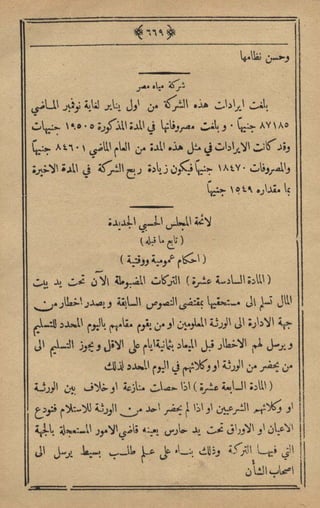 ﴿ ٦٦٩ ﴾
وحسن نظامها
شركة مياه مصر
بلغت ايرادات هذه الشركة من اول يناير لغاية نوفمبر المـاضي
٨٧١٨٥ جنيها ٠ وبلغت مصروفاتها في المدة المذكورة ١٩٥٠٥ جنيهات
وقد كانت الايرادات في مثل هذه المدة من العام الماضي ٨٤٦٠١ جنيهًا
والمصروفات ١٨٤٧٠ جنيهًا فيكون زيادة ربح الشركة في المدة الاخيرة
بما مقداره ١٥٤٩ جنيهًا
لائحة المجلس الحسبي الجديدة
( تابع ما قبله )
( احكام عمومية ووقتية )
( المادة السادسة عشرة ) التركات المضبوطة الآن تحت يد بيت
المال تسلم الى مستحقيها بمقتضى النصوص السابقة ويصدر اخطار من
جهة الادارة الى الورثة المعلومين او من يقوم مقامهم باليوم المحدد للتسليم
ويرسل لهم الاخطار قبل الميعاد بثمانية ايام على الاقل ويجوز التسليم الى
من يحضر من الورثة او وكلائهم في اليوم المحدد لذلك
( المادة السابعة عشرة ) اذا حصلت منازعة او خلاف بين الورثـة
او وكلائهم الشرعيين او اذا لم يحضر احد من الورثة للاستلام فتودع
الاعيان او الاوراق تحت يد حارس يعينه قاضي الامور المستعجلة بالجهة
التي فيهـا التركة وذلك بنـاء على علم طلـب بسيط يرسل الى
اصحاب الشأن